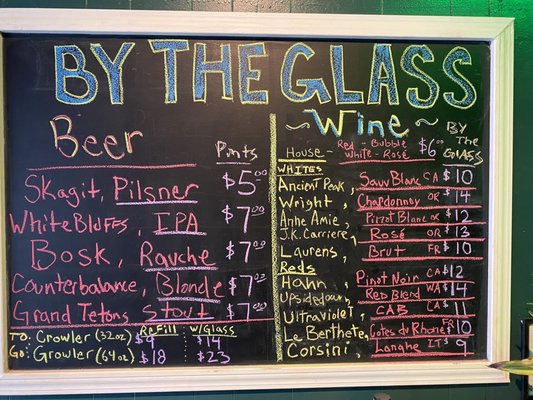 BY THE GLASS
Beer
Pints
Skagit, Pilsner $5.00
White Bluffs, IPA $7.00
Bosk, Rauche $7.00
Counterbalance, Blonde $7.00
Grand Tetons Stout $7.00
Refill w/Glass
TO: Crowler (32oz) $9 $14
GO: Growler (64oz) $18 $23
~ Wine ~
BY The GLASS
House - Red - Bubble White - Rosé $6.00
WHITES
Ancient Peak, Sauv Blanc CA $10
Wright, Chardonnay OR $14
Anne Amie, Pinot Blanc OR $12
J.K. Carriere, Rosé OR $13
Laurens, Brut FR $10
Reds
Hahn, Pinot Noir CA $12
Upsidedown, Red Blend WA $14
Ultraviolet, CAB CA $11
Le Berthete, Cotes du Rhone FR $10
Corsini, Langhe IT $9